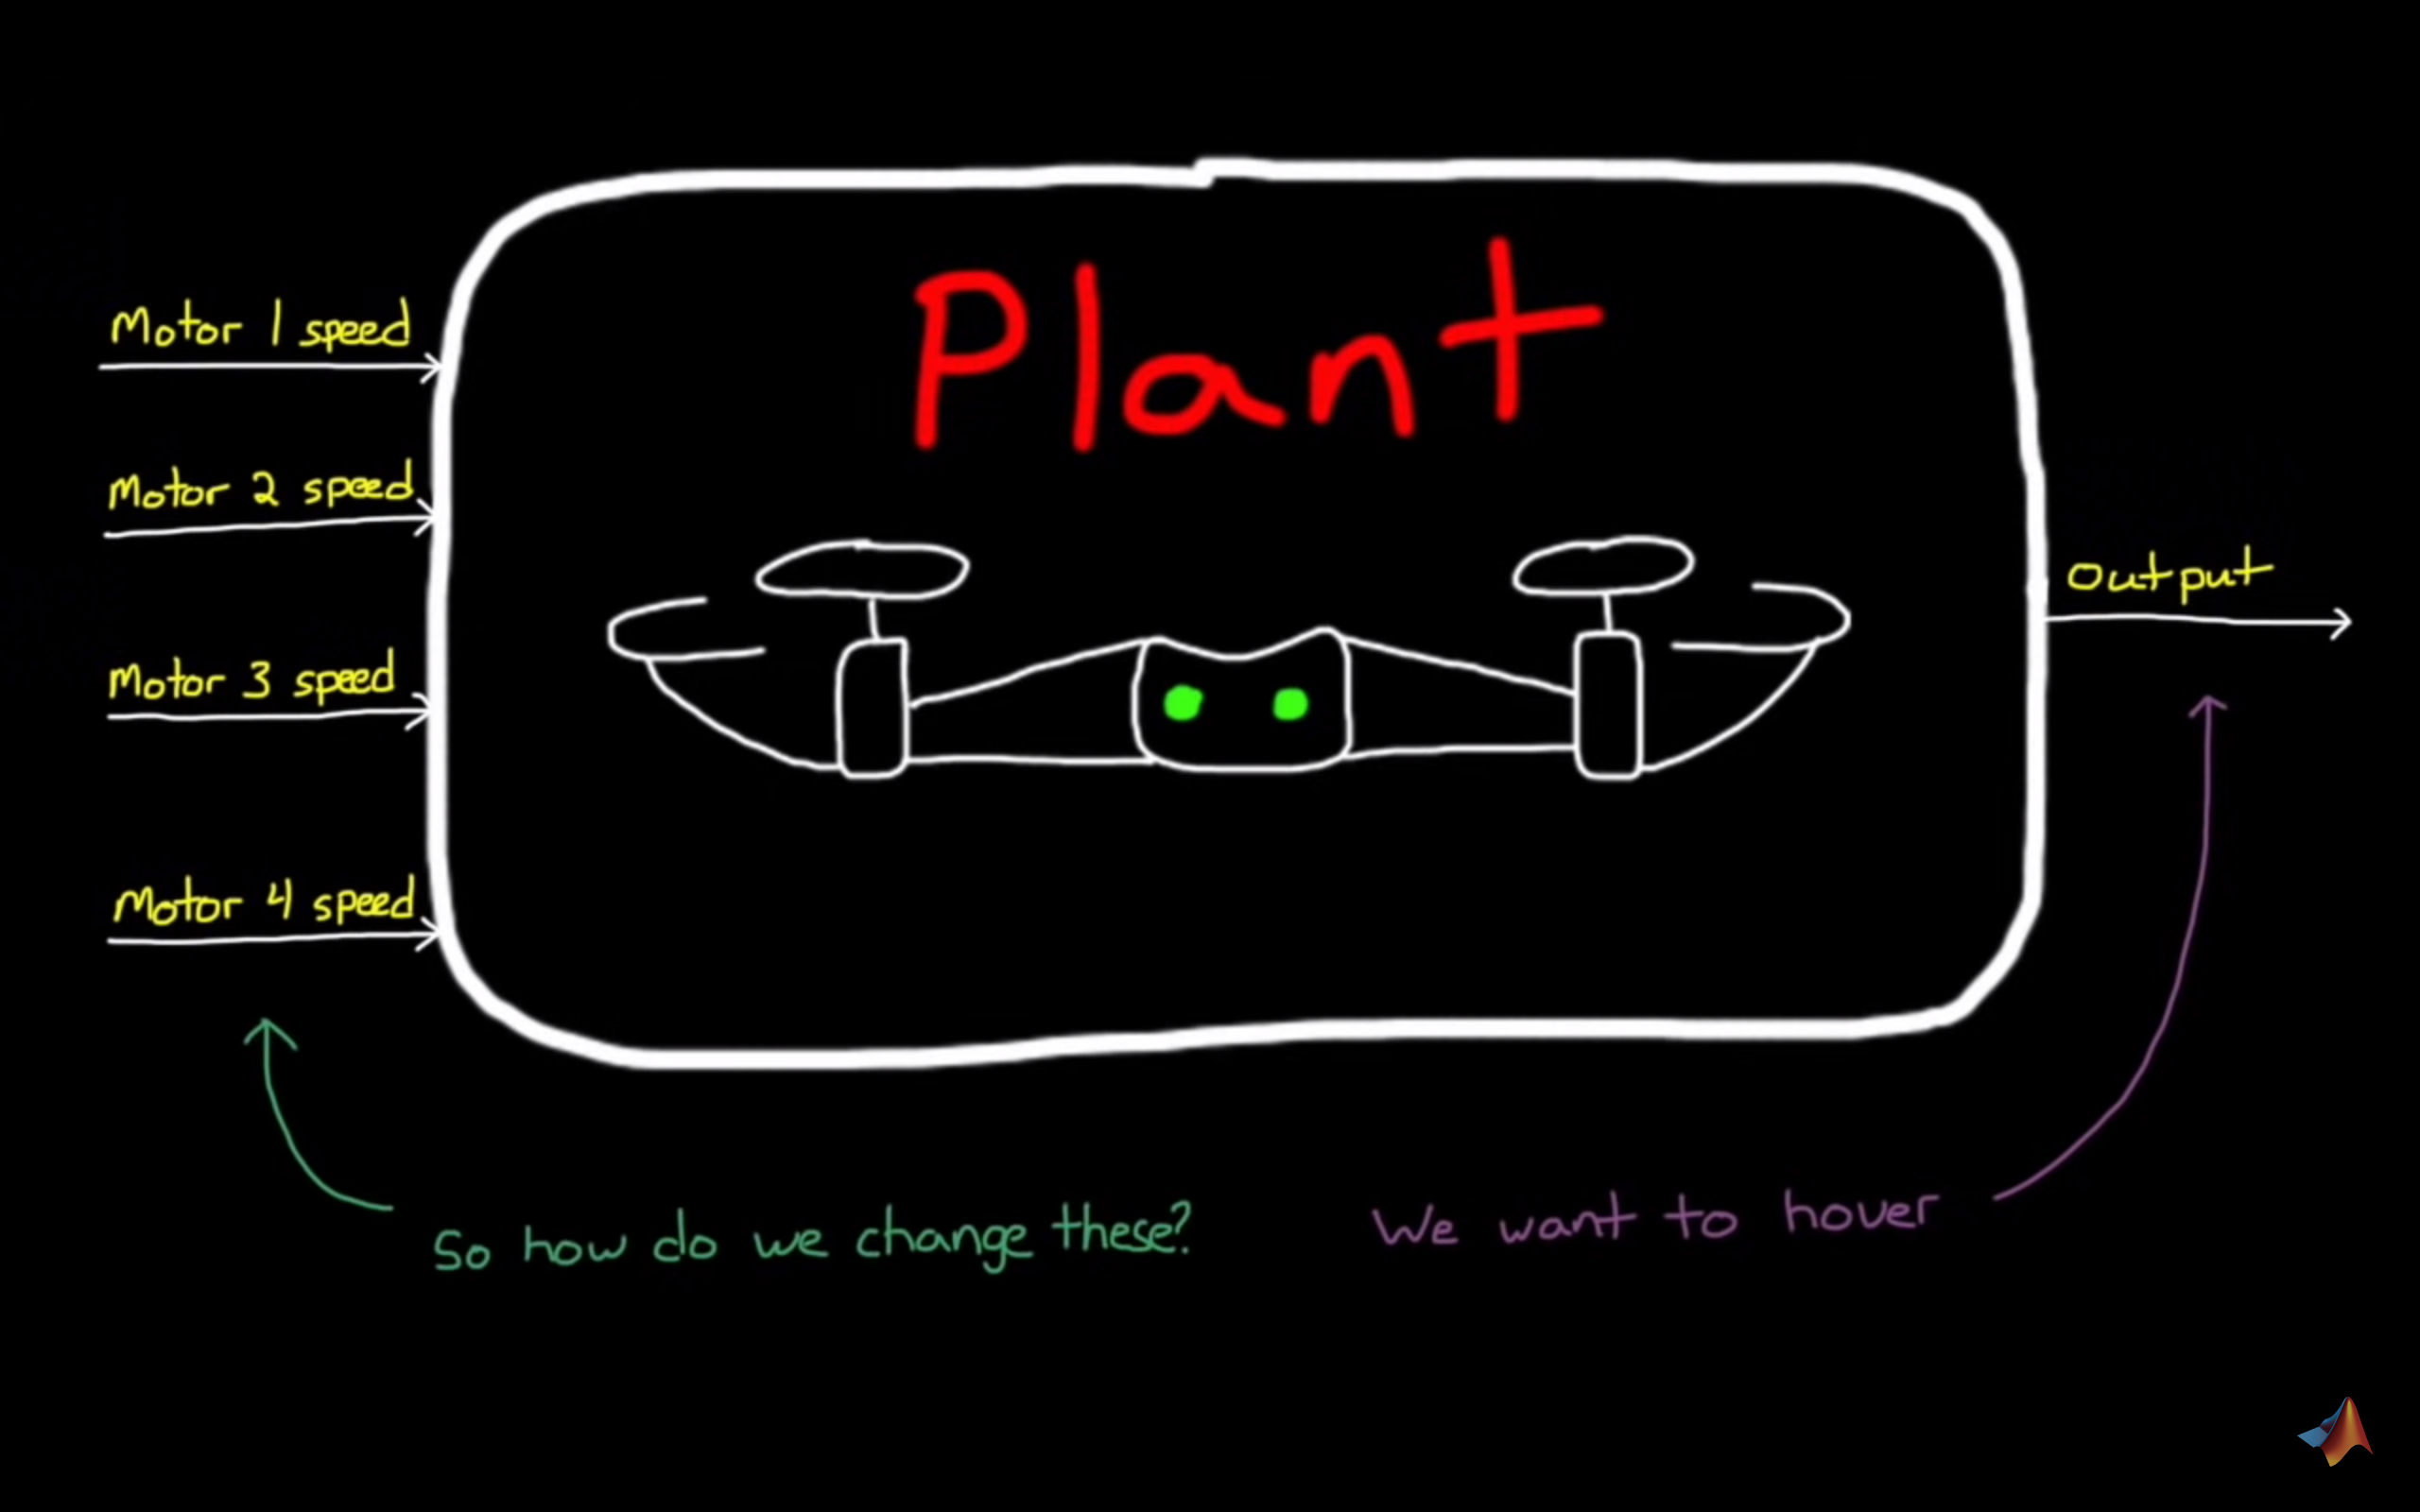 Plant
Motor 1 speed
Motor 2 speed
Motor 3 speed
Motor 4 speed
Output
So how do we change these?
We want to hover